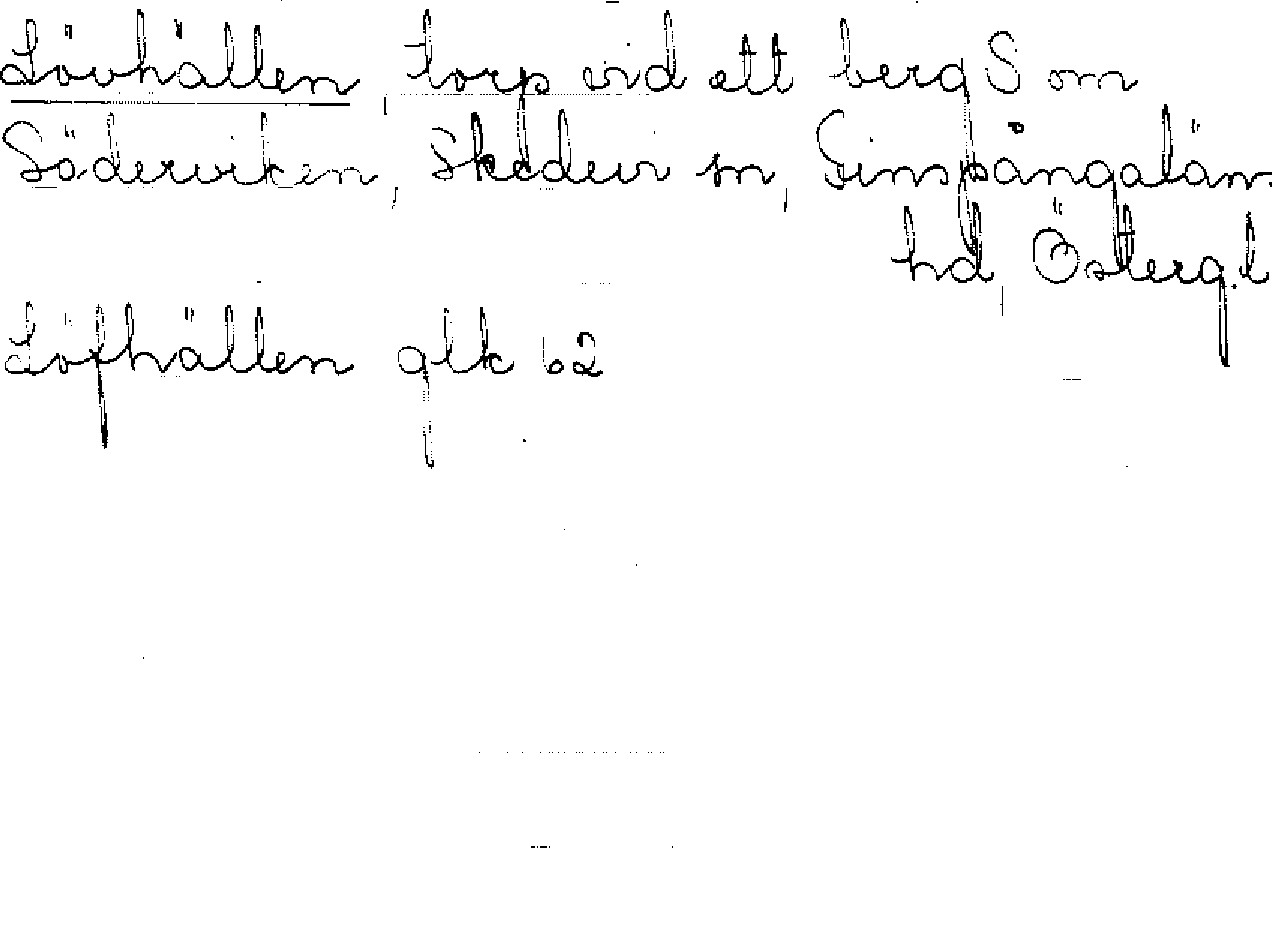 Lövhällen, torp vid ett berg S om
Söderviken, Skedevi sn, Finspångalän
hd, Österg.l
Löfhällen glk 62